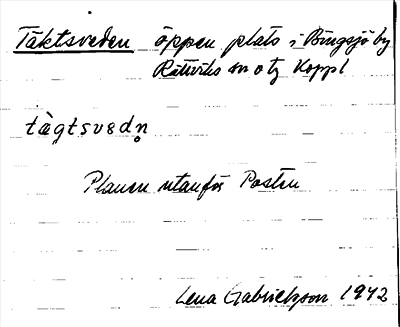 Täktsveden öppen plats i Bingsjö by
Rättviks sn o tg Koppl
tàgtsvedn̥
Planen utanför Posten
Lena Gabrielsson 1942